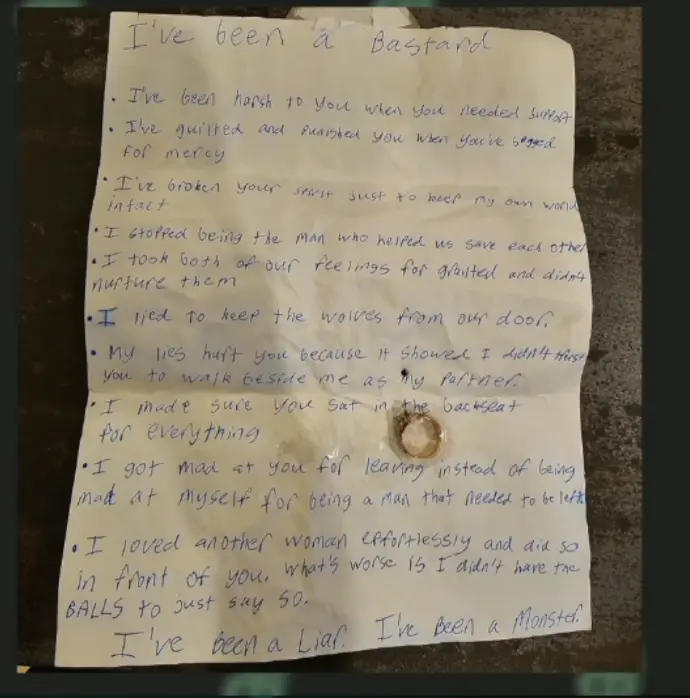 I've been a Bastard
• I've been harsh to you when you needed support
• I've guilted and punished you when you've begged
for mercy
• I've broken your spirit just to keep my own world
intact
• I stopped being the man who helped us save each other
• I took both of our feelings for granted and didn't
nurture them
• I lied to keep the wolves from our door.
• My lies hurt you because it showed I didn't trust
you to walk beside me as my partner.
• I made sure you sat in the backseat
for everything
• I got mad at you for leaving instead of being
mad at myself for being a man that needed to be left
• I loved another woman effortlessly and did so
in front of you. what's worse is I didn't have the
BALLS to just say so.
I've been a Liar. I've Been a Monster.